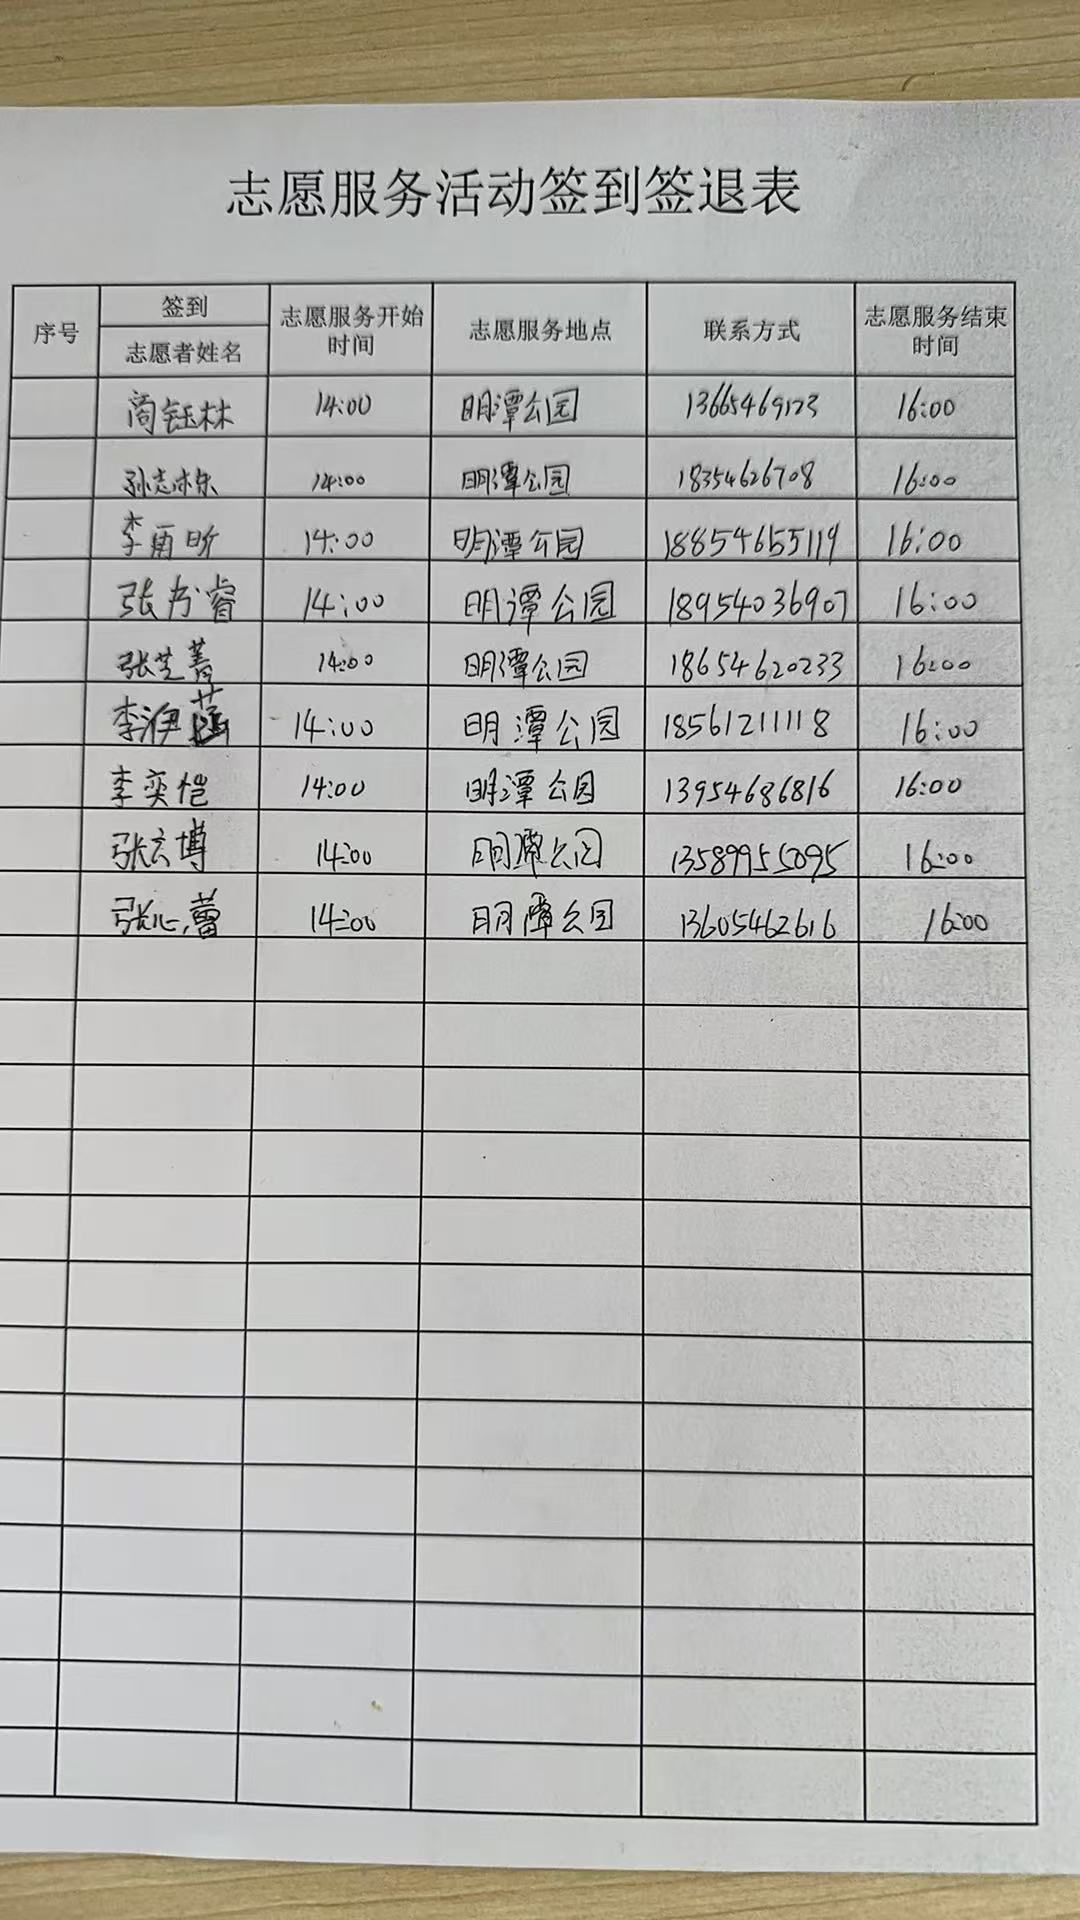 志愿服务活动签到签退表
序号 签到 志愿者姓名 志愿服务开始时间 志愿服务地点 联系方式 志愿服务结束时间
商钰林 14:00 明潭公园 13665469123 16:00
孙志栋 14:00 明潭公园 18354626708 16:00
李雨昕 14:00 明潭公园 18854655119 16:00
张书睿 14:00 明潭公园 18954036907 16:00
张芝菁 14:00 明潭公园 18654620233 16:00
李洢菡 14:00 明潭公园 18561211118 16:00
李奕恺 14:00 明潭公园 13954686816 16:00
张玄博 14:00 明潭公园 13589955095 16:00
张心蕾 14:00 明潭公园 13605462616 16:00